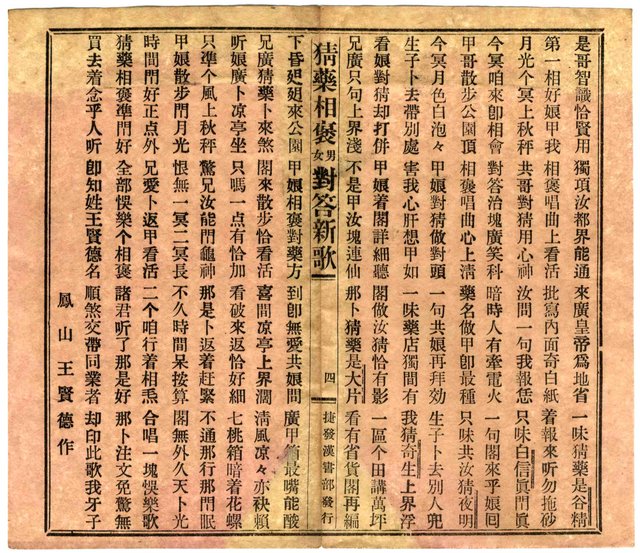 是哥智識恰賢用 獨項汝都界能通 來廣皇帝為地省 一味猜藥是谷精
第一相好娘甲我 相褒唱曲上看活 批寫內面奇白紙 着報來听勿拖砂
月光个冥上秋秤 共哥對猜用心神 汝問一句我報恁 只味白信眞門眞
今冥咱來卽相會 對答治塊廣笑科 暗時人有牽電火 一句閣來乎娘囘
甲哥散步公園頂 相褒唱曲心上淸 藥名做甲卽最種 只味共汝猜夜明
今冥月色白泡々 甲娘對猜做對頭 一句共娘再拜効 生子卜去別人兜
生子卜去帶別處 害我心肝想甲如 一味藥店獨間有 我猜奇生上界浮
看娘對猜却打併 甲娘着閣詳細聽 閣做汝猜恰有影 一區个田講萬坪
兄廣只句上界淺 不是甲汝塊連仙 那卜猜藥是大片 看有省貨閣再編
猜藥相褒男女對答新歌 四 捷發漢書部發行
下昏廻廻來公園 甲娘相褒對藥方 到卽無愛共娘問 廣甲省最嘴能酸
兄廣猜藥卜來煞 閣來散步恰看活 喜間凉亭上界濶 淸風凉々亦袂賴
听娘廣卜凉亭坐 只嗎一点有恰加 看破來返恰好細 七桃箱暗着花螺
只準个風上秋秤 驚兄汝能門龜神 那是卜返着赶緊 不通那行那門眠
甲娘散步門月光 恨無一冥二冥長 不久時間呆按算 閣無外久天卜光
時間門好正点外 兄愛卜返甲看活 二个咱行着相𤆬 合唱一塊悞樂歌
猜藥相褒準門好 全部悞樂个相褒 諸君听了那是好 那卜注文免驚無
買去着念乎人听 卽知姓王賢德名 順煞交帶同業者 却印此歌我牙子
鳳山王賢德作